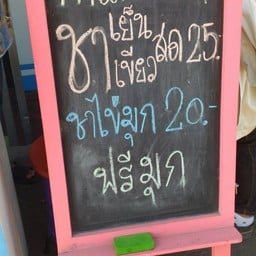 ชาเย็น
เขียว สด 25.-
ชาไข่มุก 20.-
ฟรีมุก